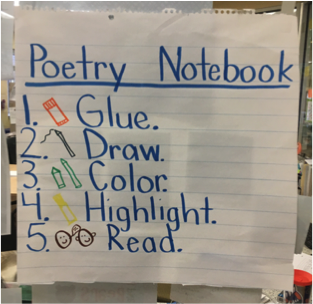 Poetry Notebook
1. Glue.
2. Draw.
3. Color.
4. Highlight.
5. Read.